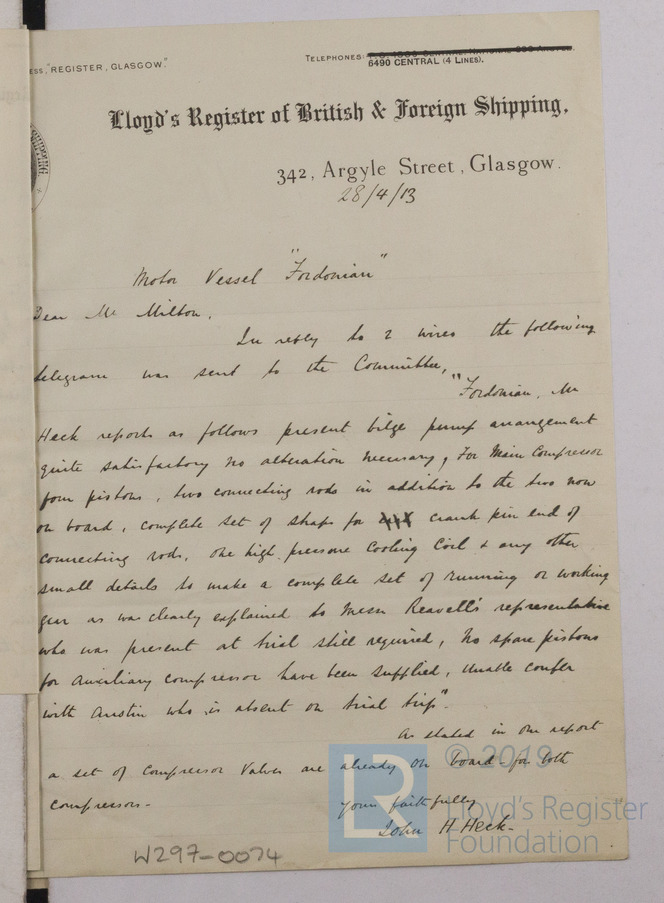 ESS, "REGISTER, GLASGOW."
TELEPHONES:
6490 CENTRAL (4 LINES).
Lloyd's Register of British & Foreign Shipping,
342, Argyle Street, Glasgow.
28/4/13
Motor Vessel "Fordonian"
Dear Mr Milton,
In reply to 2 wires the following
telegram was sent to the Committee,
"Fordonian, Mr
Heck reports as follows present bilge pump arrangement
quite satisfactory no alteration necessary, For Main Compressor
four pistons, two connecting rods in addition to the two now
on board, complete set of straps for crank pin end of
connecting rods, one high pressure Cooling Coil & any other
small details to make a complete set of running or working
gear as was clearly explained to Messrs Reavell's representative
who was present at trial still required, No spare pistons
for auxiliary compressor have been supplied, Unable confer
with Austin who is absent on trial trip".
As stated in our report
a set of Compressor Valves are already on board for both
compressors-
yours faithfully
John H Heck-
W297-0074
LR
© 2019
Lloyd's Register
Foundation